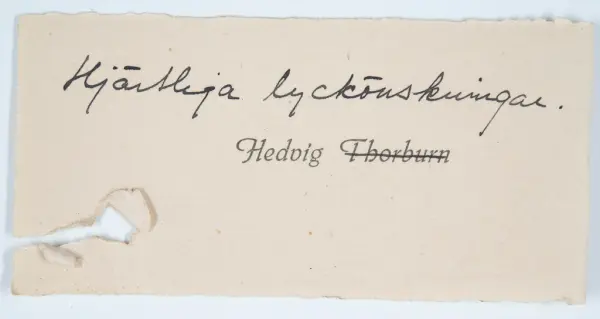 Hjärtliga lyckönskningar.
Hedvig Thorburn